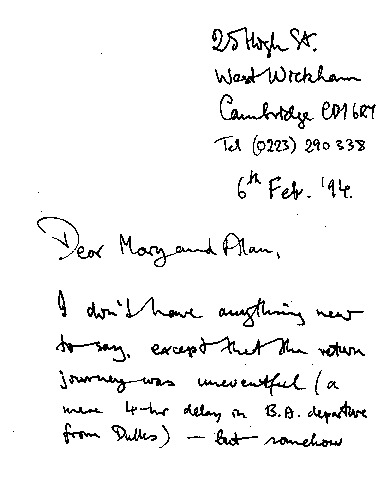 25 High St.
West Wickham
Cambridge CB1 6RY
Tel (0223) 290338
6th Feb. '94.
Dear Mary and Alan,
I don't have anything new
to say, except that the return
journey was uneventful (a
mere 4-hr delay in B.A. departure
from Dulles) – but somehow